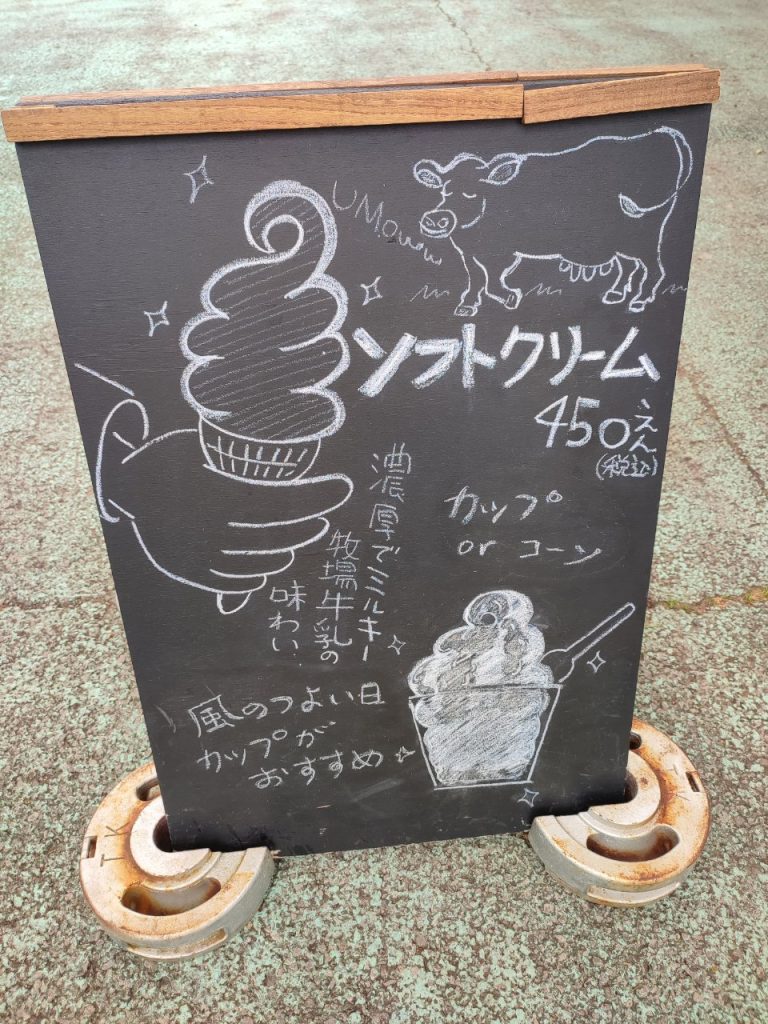 UMOuuu
ソフトクリーム
450えん
(税込)
カップ
or コーン
濃厚でミルキー
牧場牛乳の
味わい.
風のつよい日
カップが
おすすめ
TK